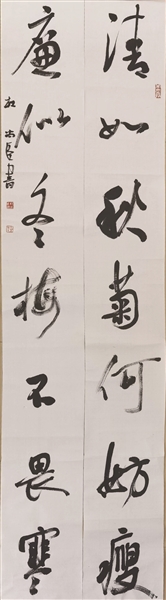 清如秋菊何妨瘦
廉似冬梅不畏寒